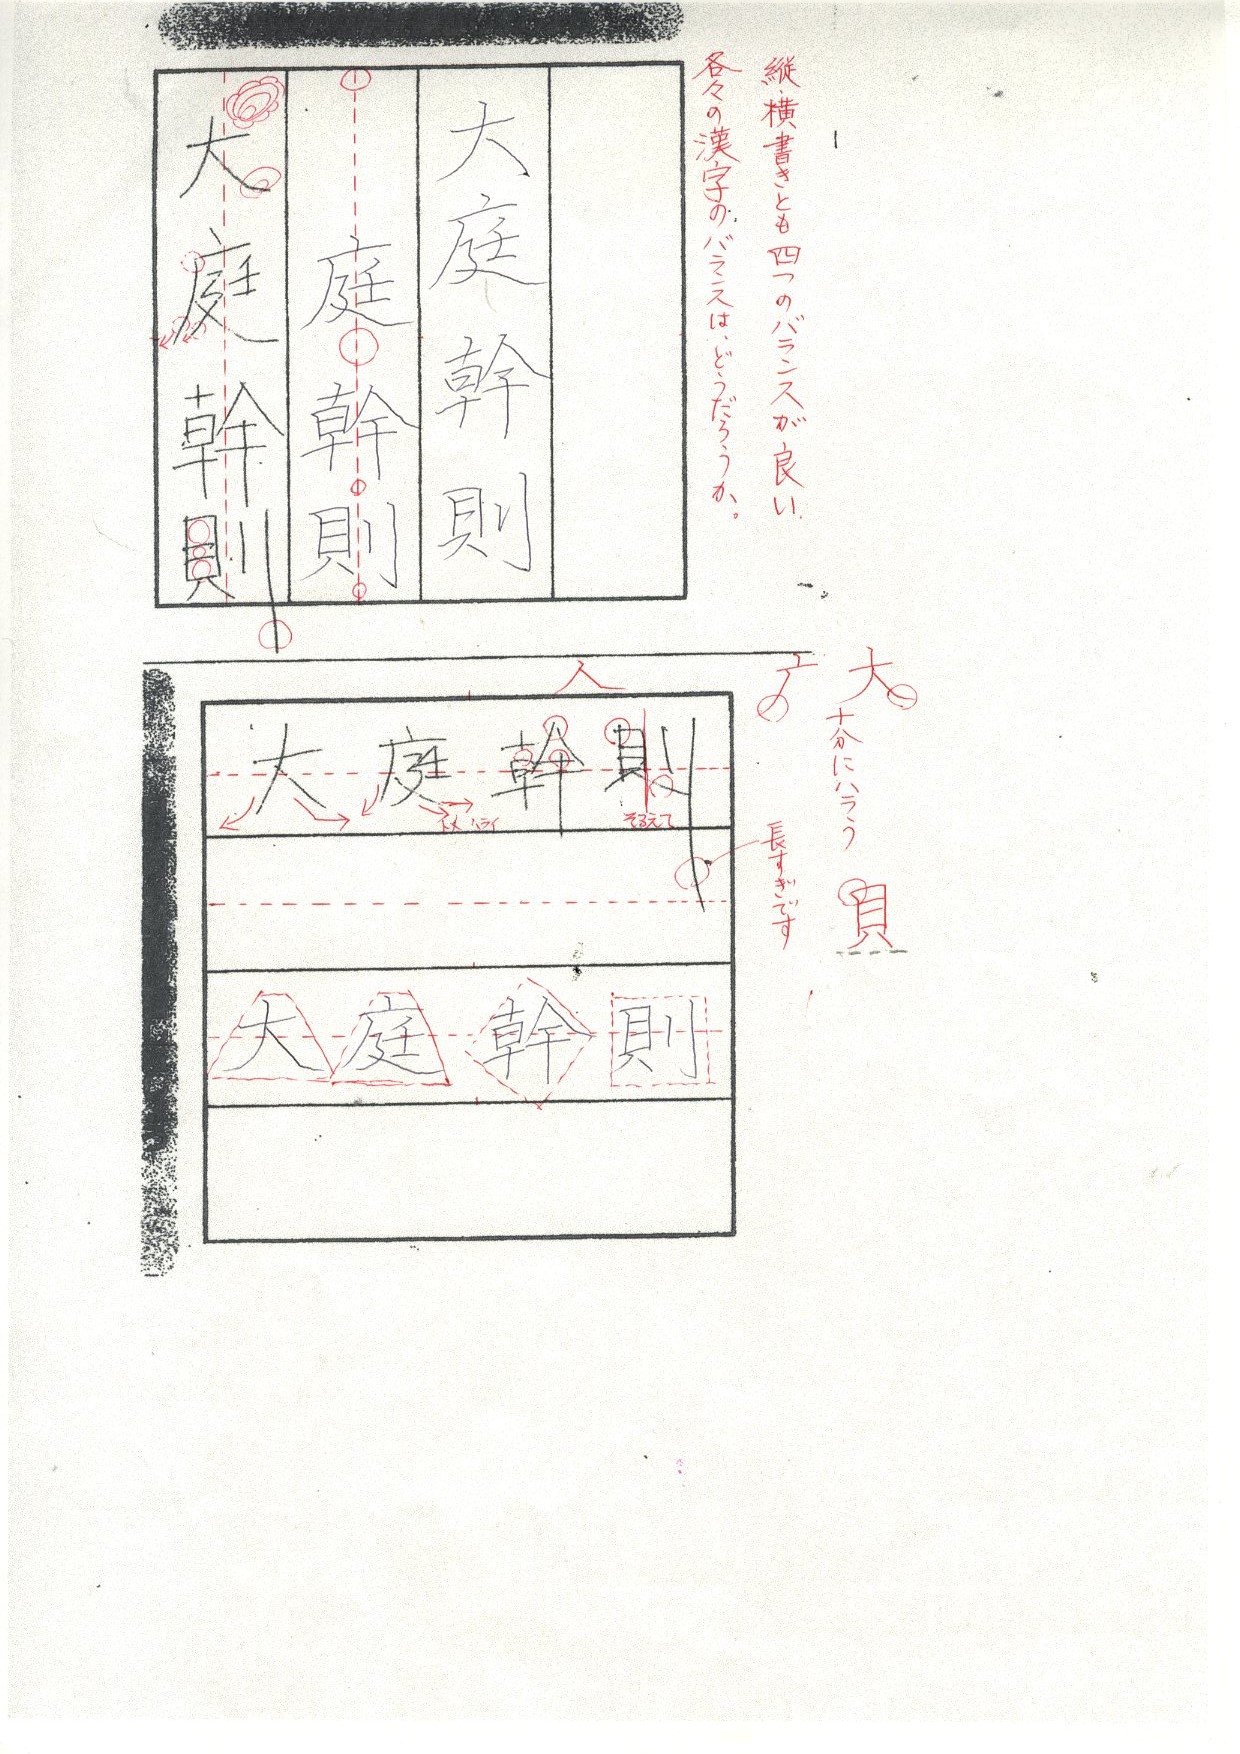 縦・横書きとも四つのバランスが良い。
各々の漢字のバランスは、どうだろうか。
大庭幹則
庭幹則
大庭幹則
大
十分にハラう
人
大庭幹則
トメ ハライ
そろえて
長すぎです
貝
大庭幹則